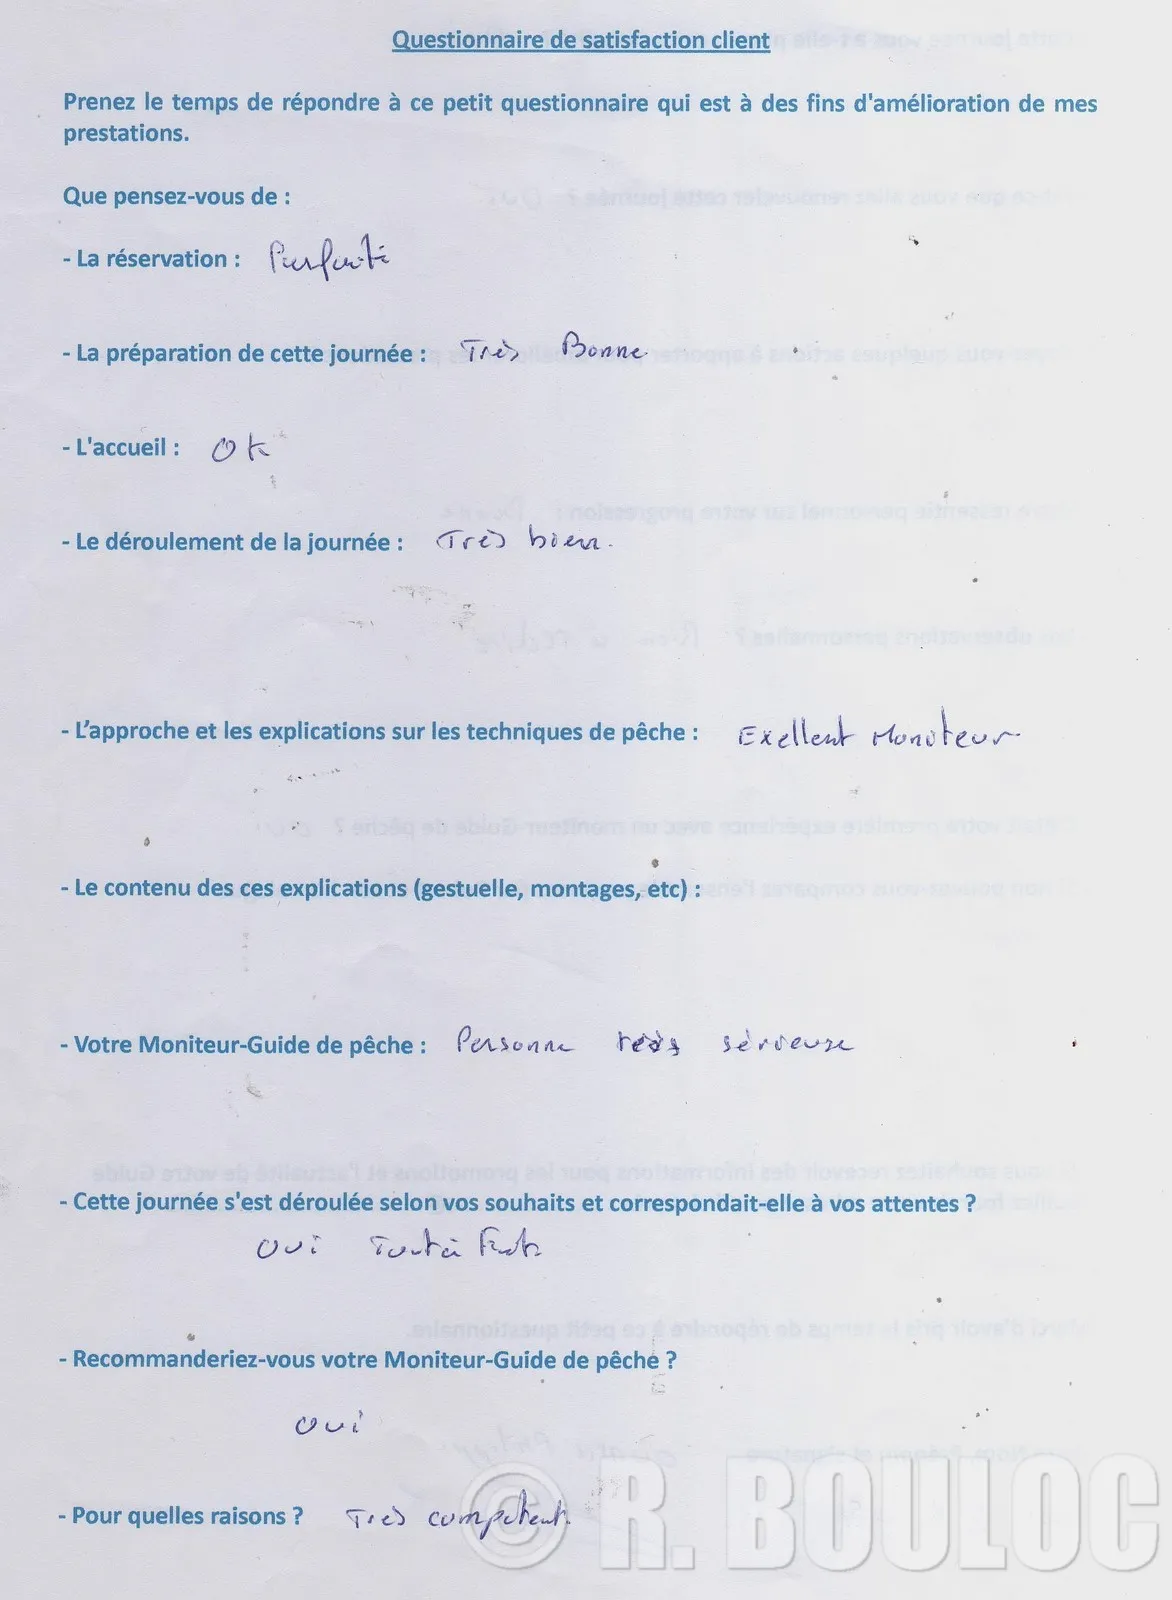 Questionnaire de satisfaction client
Prenez le temps de répondre à ce petit questionnaire qui est à des fins d'amélioration de mes
prestations.
Que pensez-vous de :
- La réservation : Parfaite
- La préparation de cette journée : Très Bonne
- L'accueil : OK
- Le déroulement de la journée : Très bien.
- L'approche et les explications sur les techniques de pêche : Exellent Moniteur
- Le contenu des ces explications (gestuelle, montages, etc) :
- Votre Moniteur-Guide de pêche : Personne très sérieuse
- Cette journée s'est déroulée selon vos souhaits et correspondait-elle à vos attentes ?
oui Tout à Fait
- Recommanderiez-vous votre Moniteur-Guide de pêche ?
oui
- Pour quelles raisons ? Très compétent.
© R. BOULOC